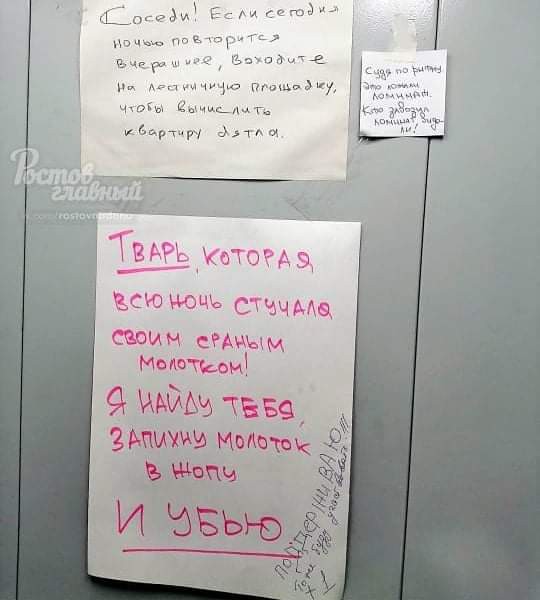 Соседи! Если сегодня
ночью повторится
вчерашнее, выходите
на лестничную площадку,
чтобы вычислить
квартиру дятла.
Судя по ритму
это
ламинат.
Кто
ламинат,
ли!
Ростов
главный
ТВАРЬ, КОТОРАЯ
ВСЮ НОЧЬ СТУЧАЛА
СВОИМ СРАНЫМ
МОЛОТКОМ!
Я НАЙДУ ТЕБЯ,
ЗАПИХНУ МОЛОТОК
В ЖОПУ
И УБЬЮ
ПОДДЕРЖИВАЮ
Тоже буду
+1